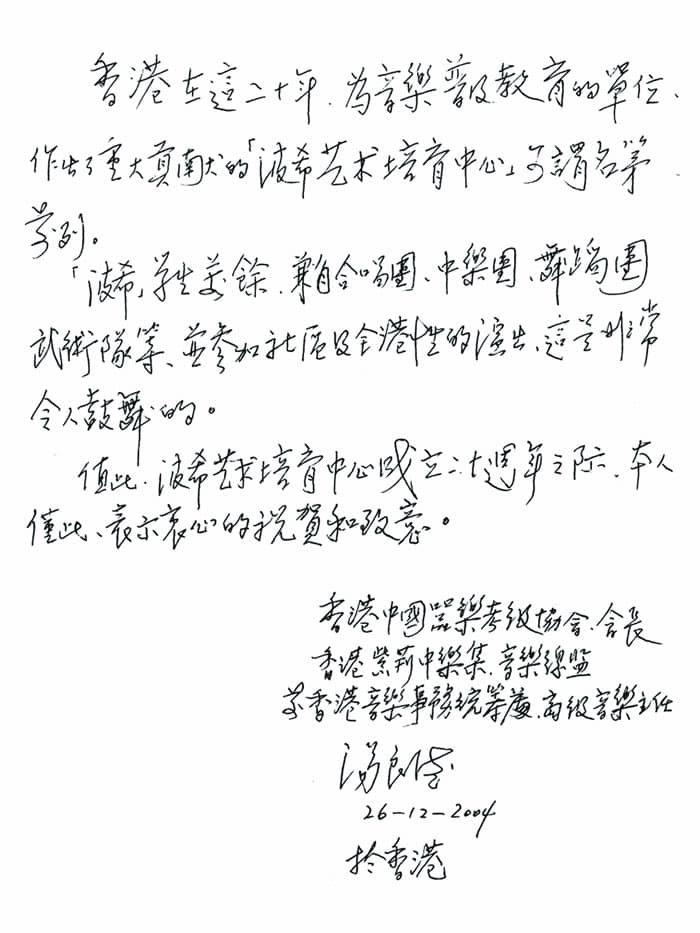 香港在這二十年、為音樂普及教育的單位、
作出了重大貢献的「波希艺术培育中心」可謂名茅
前列。
「波希」學生萬餘、兼有合唱團、中樂團、舞蹈團
武術隊等、並參加社區及全港性的演出、這是非常
令人鼓舞的。
值此、波希艺术培育中心成立二十週年之际、本人
僅此、表示衷心的祝賀和致意。
香港中國器樂考级協會、會長
香港紫荊中樂集、音樂總監
前香港音樂事務統籌處、高级音樂主任
湯良德
26-12-2004
於香港